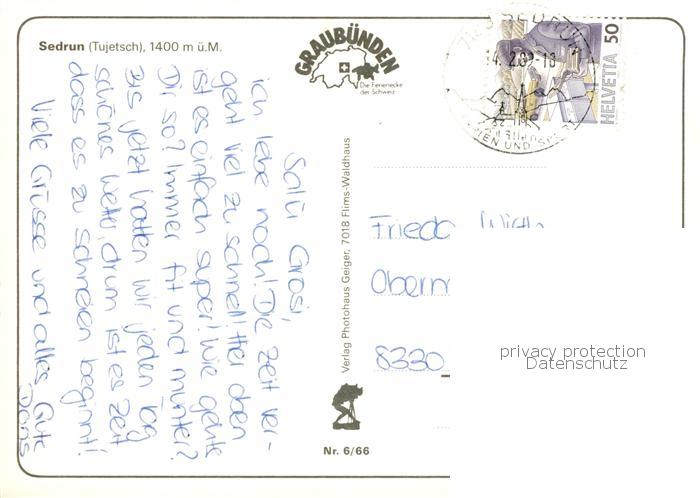 Sedrun (Tujetsch), 1400 m ü.M.
GRAUBÜNDEN
Die Ferienecke
der Schweiz
HELVETIA 50
Salü Grosi,
ich lebe noch! Die Zeit ver-
geht viel zu schnell! Hier oben
ist es einfach super! Wie gehts
Dir so? Immer fit und munter?
Bis jetzt hatten wir jeden Tag
schönes Wetter, drum ist es Zeit
dass es zu schneien beginnt!
Viele Grüsse und alles Gute
Doris
Verlag Photohaus Geiger, 7018 Flims-Waldhaus
Frieda
8330
privacy protection
Datenschutz
Nr. 6/66